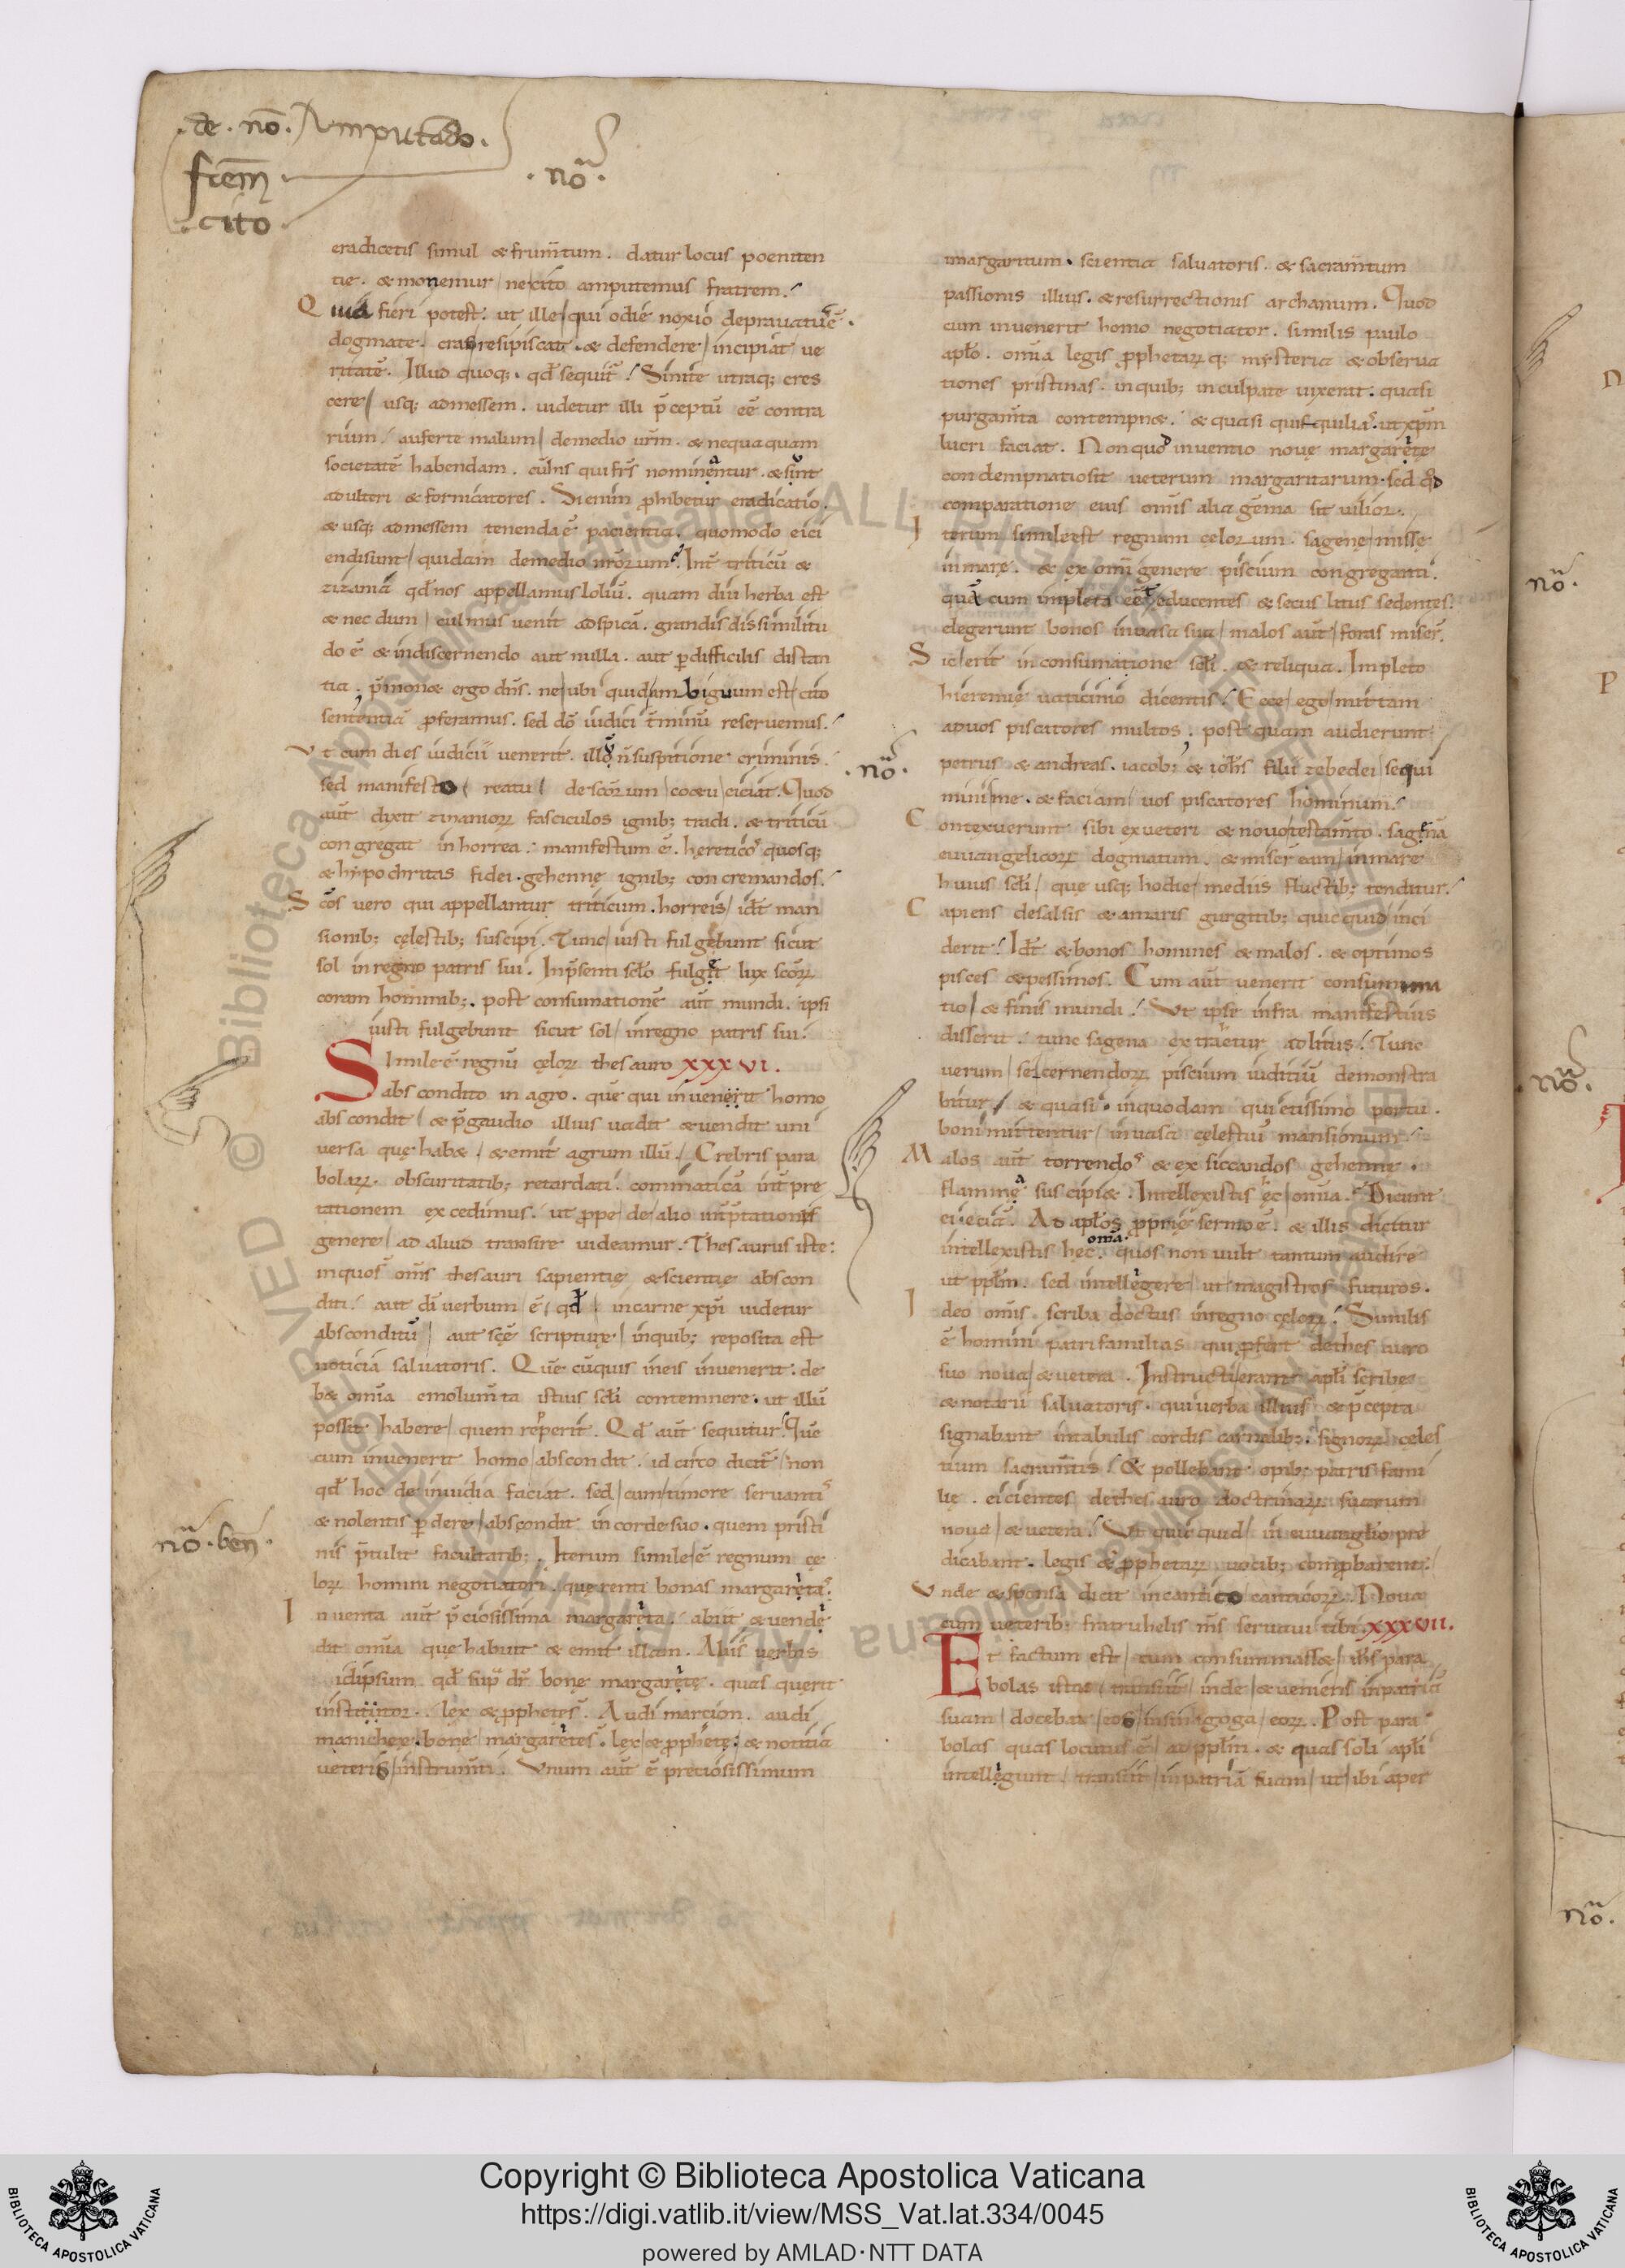 .de. nō. Amputādo.
frēm
.cito.
.nō.
eradicetis simul & frum̄tum. datur locus poeniten
tie. & monemur ne cito amputemus fratrem.
Quia fieri potest. ut ille qui odie noxio depravatus ē.
dogmate. cras resipiscat. & defendere incipiat ve
ritatē. Illud quoq;. qd̄ sequit̄. Sinite utraq; cres
cere usq; admessem. uidetur illi p̄ceptū eē contra
rium. auferte malum demedio ur̄m. & nequaquam
societatē habendam. cūhis qui fr̄s nominantur. & sunt
adulteri & fornicatores. Si enim phibetur eradicatio.
& usq; admessem tenenda ē pacientia. quomodo eici
endi sunt quidam demedio ur̄orum. Int̄ triticū &
zizania qd̄ nos appellamus loliū. quam diu herba est
& nec dum culmus venit adspicā. grandis dissimilitu
do ē & indiscernendo aut nulla. aut pdifficilis distan
tia. p̄mon& ergo dn̄s. ne ubi quid ambiguum est cito
sententiā pferamus. sed dō iudici t̄minū reservemus.
Ut cum dies iudicii venerit. ille n̄ suspitione criminis.
sed manifesto reatu de scōrum coetu eiciat. Quod
aut̄ dixit zizaniorꝝ fasciculos ignib; tradi. & triticū
congregat in horrea. manifestum ē. hereticos quosq;
& hypochritas fidei. gehennę ignib; concremandos.
Scōs vero qui appellantur triticum. horreis id̄t man
sionib; cęlestib; suscipi. Tunc iusti fulgebunt sicut
sol in regno patris sui. Inp̄senti sclo fulget lux scōrꝝ
coram hominib;. post consumationē aut̄ mundi. ipsi
iusti fulgebunt sicut sol in regno patris sui.
Simile ē regnū cęlorꝝ thesauro XXXVI.
abscondito in agro. quē qui invenerit homo
abscondit & p̄ gaudio illius vadit & vendit uni
versa quę hab&. & emit agrum illū. Crebris para
bolarꝝ. obscuritatib; retardati. commaticā int̄pre
tationem excedimus. ut ppe de alio int̄ptationis
genere ad aliud transire videamur. Thesaurus iste:
inquos om̄s thesauri sapientię & scientię abscon
diti. aut dī verbum ē qd̄ incarne xp̄i uidetur
absconditū aut scē scripturę inquib; reposita est
noticia salvatoris. Quē cūquis ineis invenerit: de
b& om̄a emolum̄ta istius scl̄i contemnere. ut illū
possit habere quem repperit. Qd̄ aut̄ sequitur. Quē
cum invenerit homo abscondit. idcirco dicit̄ non
qd̄ hoc de invidia faciat. sed cum timore servantis
& nolentis pdere abscondit in corde suo. quem pristi
nis p̄tulit facultatib;. Iterum simile ē regnum cę
lorꝝ homini negotiatori. querenti bonas margaretas.
Inventa aut̄ p̄ciosissima margareta. abiit & vende
dit om̄a quę habuit & emit illam. Aliis verbis
idipsum qd̄ sup̄ dr̄. bonę margaretę. quas querit
institor. lex & pphetes. Audi marcion. audi
manichee. bonę margaretes. lex & pphetę. & notitia
veteris instrum̄ti. Unum aut̄ ē preciosissimum
nō.ben̄.
margaritum. scientia salvatoris. & sacram̄tum
passionis illius. & resurrectionis archanum. Quod
cum invenerit homo negotiator. similis paulo
aplō. om̄a legis pphetarꝝ q; mysteria & observa
tiones pristinas. in quib; inculpate vixerat. quasi
purgam̄ta contempn&. & quasi quisquilias. ut xp̄m
lucri faciat. Non quod inventio novę margaretę
condempnatio sit veterum margaritarum. sed qd
comparatione eius om̄is alia gēma sit vilior.
Iterum simile est regnum cęlorum. sagenę missę
in mare. & ex om̄i genere piscium congreganti.
quę cum impleta eēt educentes & secus litus sedentes.
elegerunt bonos in vasa sua malos aut̄ foras miser̄.
Sic erit in consumatione scl̄i. & reliqua. Impleto
hieremię vaticinio dicentis. Ecce ego mittam
ad vos piscatores multos, post quam audierunt
petrus & andreas. iacob; & ioh̄s filii zebedei sequi
mini me. & faciam vos piscatores hominum.
Contexuerunt sibi ex veteri & novo testam̄to. sagenā
euuangelicorꝝ dogmatum. & miser̄ eam in mare
huius scl̄i que usq; hodie mediis fluctib; tenditur.
Capiens desalsis & amaris gurgitib; quicquid inci
derit. Id̄t & bonos homines & malos. & optimos
pisces & pessimos. Cum aut̄ venerit consumma
tio & finis mundi. Ut ipse infra manifestius
disserit. tunc sagena extraetur ad litus. Tunc
verum secernendorꝝ piscium iuditiū demonstra
bitur. & quasi in quodam quietissimo portu.
boni mittentur in vasa cęlestiū mansionum.
Malos aut̄ torrendos & exsiccandos gehenne.
flamma suscipi&. Intellexistis hęc om̄a. Dicunt
ei etiā. Ad aplōs pprię sermo ē. & illis dicitur
intellexistis hec omia. quos non vult tantum audire
ut ppl̄m. sed intellegere ut magistros futuros.
Ideo om̄is scriba doctus in regno cęlorꝝ. Similis
ē homini patrifamilias qui pfert de thesauro
suo nova & vetera. Instructi erant apl̄i scribę
& notarii salvatoris. qui verba illius & p̄cepta
signabant in tabulis cordis carnalib;. signorꝝ celes
tium sacram̄tis. & pollebant opib; patris fami
lię. eicientes de thesauro doctrinarꝝ suarum
nova & vetera. Ut quicquid in euuangl̄io pre
dicabant. legis & pphetarꝝ vocib; compbarent.
Unde & sponsa dicit in cantico canticorꝝ. Nova
cum veterib; fratruhelis m̄s servavi tibi. XXXVII.
Et factum est cum consummass& ih̄s para
bolas istas transiit inde & veniens in patriā
suam docebat eos in sinagoga eorꝝ. Post para
bolas quas locutus ē ad ppl̄m. & quas soli apl̄i
intellegunt transiit in patriā suam ut ibi aper
.nō.
nō.
nō.
nō.
Copyright © Biblioteca Apostolica Vaticana
https://digi.vatlib.it/view/MSS_Vat.lat.334/0045
powered by AMLAD·NTT DATA
BIBLIOTECA APOSTOLICA VATICANA
BIBLIOTECA APOSTOLICA VATICANA